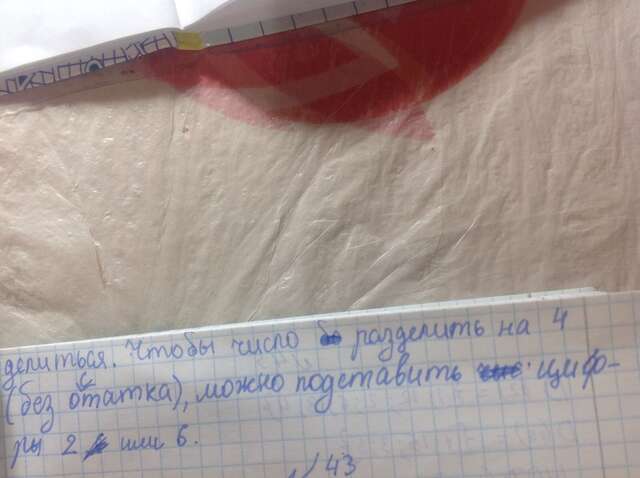 делиться. Чтобы число разделить на 4
(без остатка), можно подставить циф-
ры 2 или 6.
№43